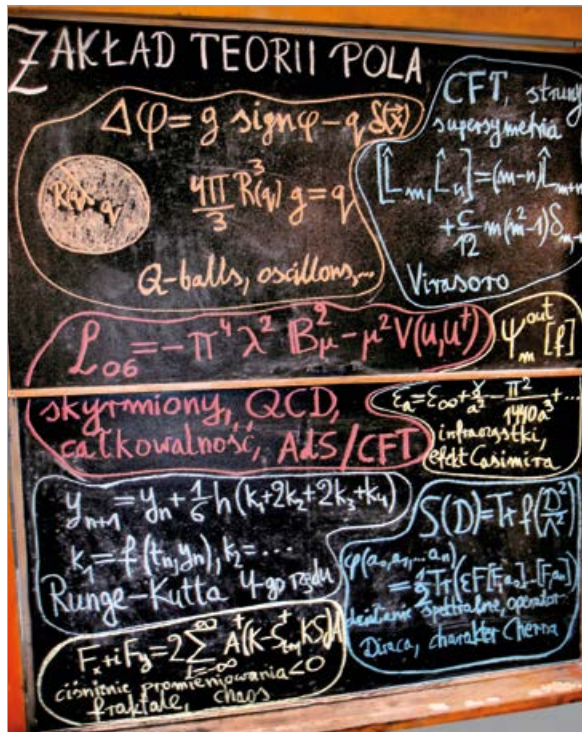 ZAKŁAD TEORII POLA
Δφ = g signφ − q δ(x⃗)
R(q) q
4π/3 R³(q) g = q
Q-balls, oscillons,...
CFT, struny
supersymetria
[L̂m, L̂n] = (m−n) L̂m+n
+ c/12 m(m²−1) δm+
Virasoro
ℒ06 = −π⁴ λ² 𝔹²μ − μ² V(u,u†)
ψm^out [f]
skyrmiony, QCD,
całkowalność, AdS/CFT
εa = ε∞ + γ/a² − π²/1440a³ + ...
infracząstki,
efekt Casimira
yn+1 = yn + 1/6 h(k1+2k2+2k3+k4)
k1 = f(tn,yn), k2 = ...
Runge-Kutta 4-go rzędu
S(D) = Tr f(D²/Λ²)
φ(a0,a1,...an)
= 1/2 Tr(εF[F,a0]...[F,an])
działanie spektralne, operator
Diraca, charakter Cherna
Fx+iFy = 2
ciśnienie promieniowania<0
fraktale, chaos